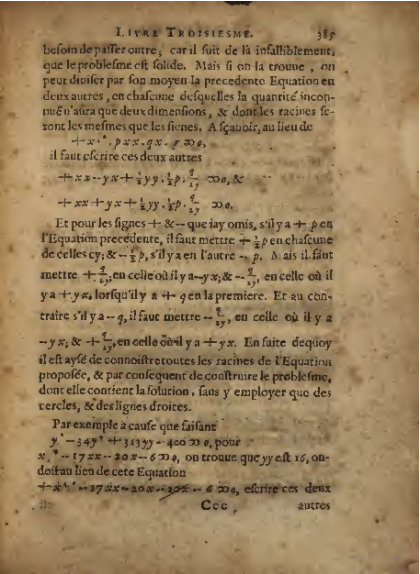 LIVRE TROISIESME. 385
besoin de passer outre; car il suit de là infalliblement,
que le problesme est solide. Mais si on la trouue, on
peut diuiser par son moyen la precedente Equation en
deux autres, en chascune desquelles la quantité incon-
nuë n'aura que deux dimensions, & dont les racines se-
ront les mesmes que les sienes. A sçauoir, au lieu de
+ x⁴ * . pxx . qx . r ∞ 0,
il faut escrire ces deux autres
+ xx -- yx + ½yy . ½p . q/2y ∞ 0, &
+ xx + yx + ½yy . ½p . q/2y ∞ 0.
Et pour les signes + & -- que iay omis, s'il y a + p en
l'Equation precedente, il faut mettre + ½p en chascune
de celles cy; & -- ½p, s'il y a en l'autre -- p. Mais il faut
mettre + q/2y, en celle où il y a -- yx; & -- q/2y, en celle où il
y a + yx, lorsqu'il y a + q en la premiere. Et au con-
traire s'il y a -- q, il faut mettre -- q/2y, en celle où il y a
-- yx; & + q/2y, en celle où il y a + yx. En suite dequoy
il est aysé de connoistre toutes les racines de l'Equation
proposée, & par consequent de construire le problesme,
dont elle contient la solution, sans y employer que des
cercles, & des lignes droites.
Par exemple à cause que faisant
y⁶ -- 34y⁴ + 313yy -- 400 ∞ 0, pour
x⁴ * -- 17xx -- 20x -- 6 ∞ 0, on trouue que yy est 16, on
doit au lieu de cete Equation
+ x⁴ * -- 17xx -- 20x -- 6 ∞ 0, escrire ces deux
Ccc autres